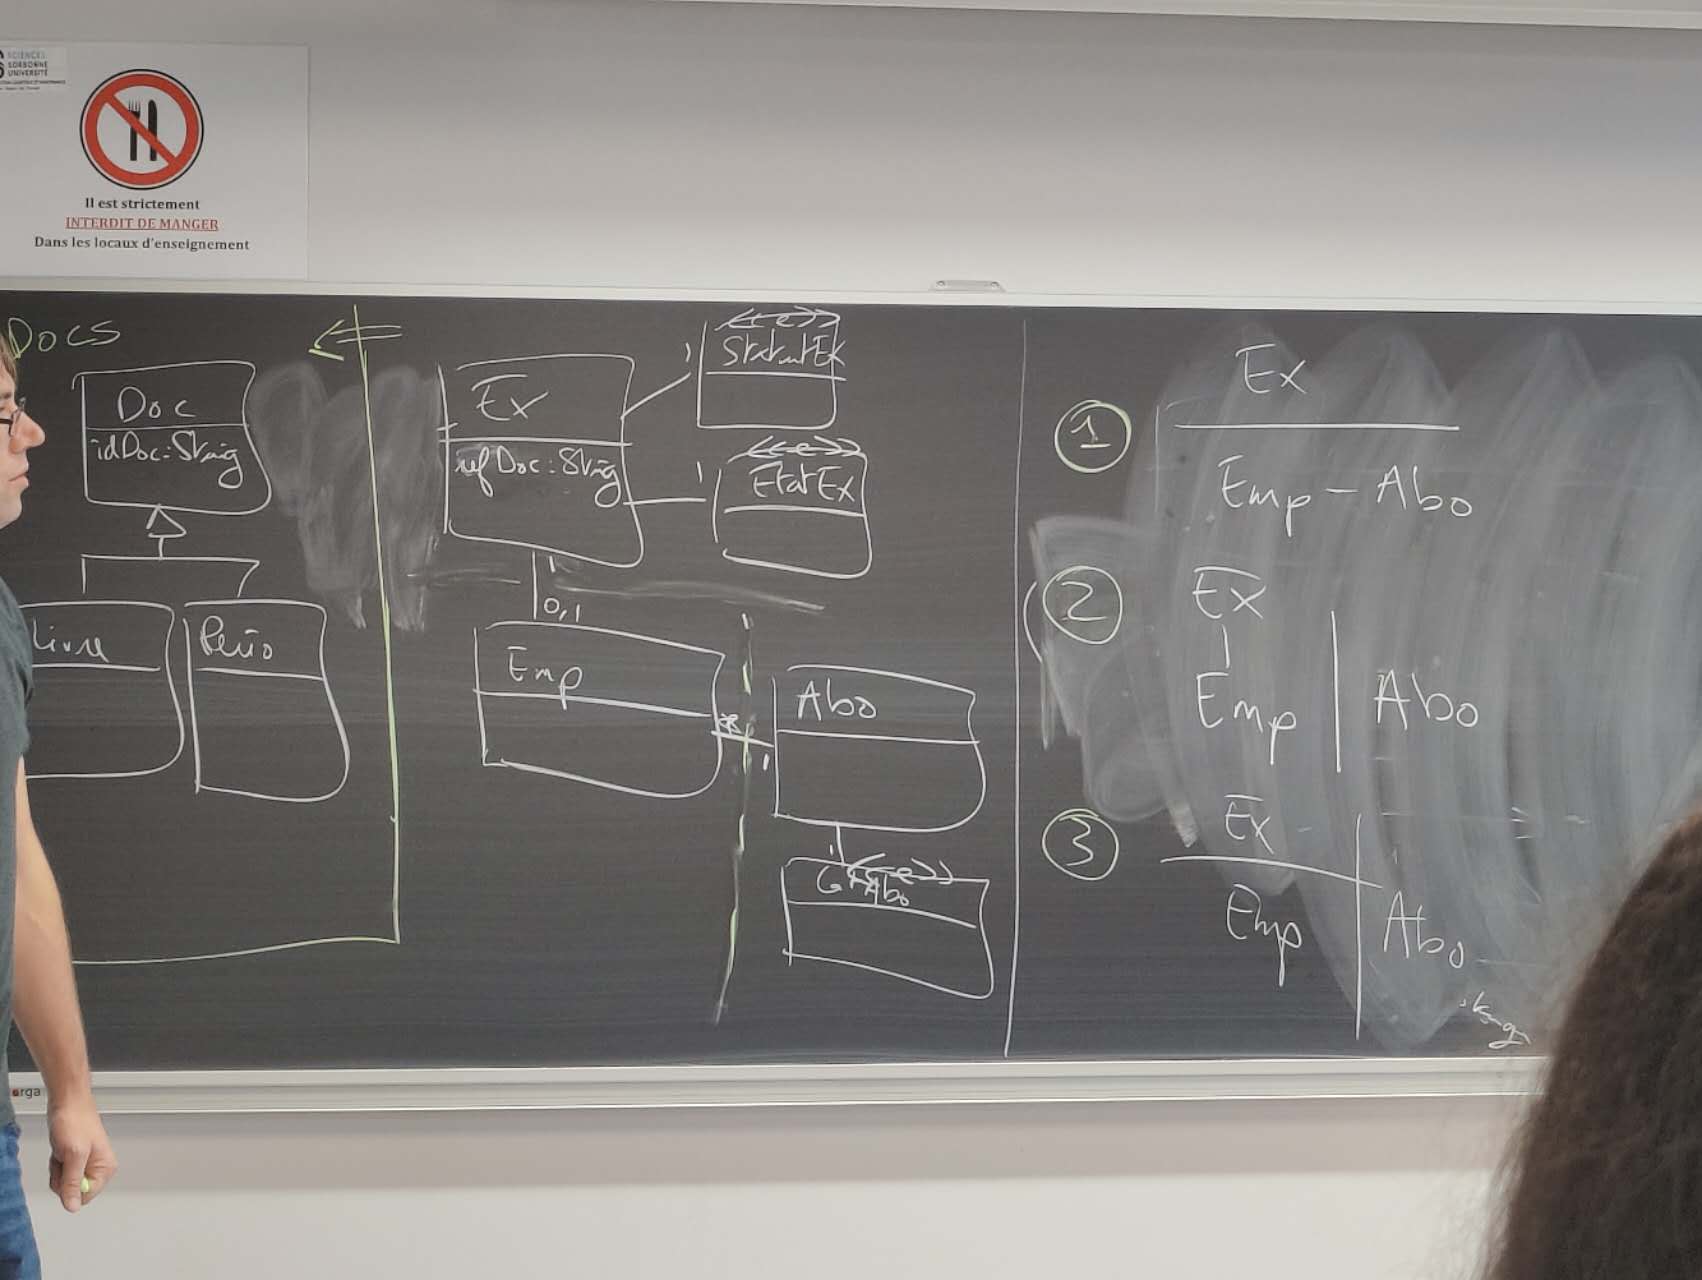 SCIENCES
SORBONNE
UNIVERSITÉ
Il est strictement
INTERDIT DE MANGER
Dans les locaux d'enseignement
DOCS
Doc
idDoc: String
Livre
Ex
refDoc: String
1
<<e>>
StatutEx
1
<<e>>
EtatEx
1
0,1
Emp
*
1
Abo
1
<<e>>
① Ex
Emp - Abo
② Ex
Emp | Abo
③ Ex
Emp | Abo
erga